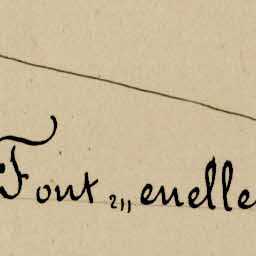 Font 2,, enelle